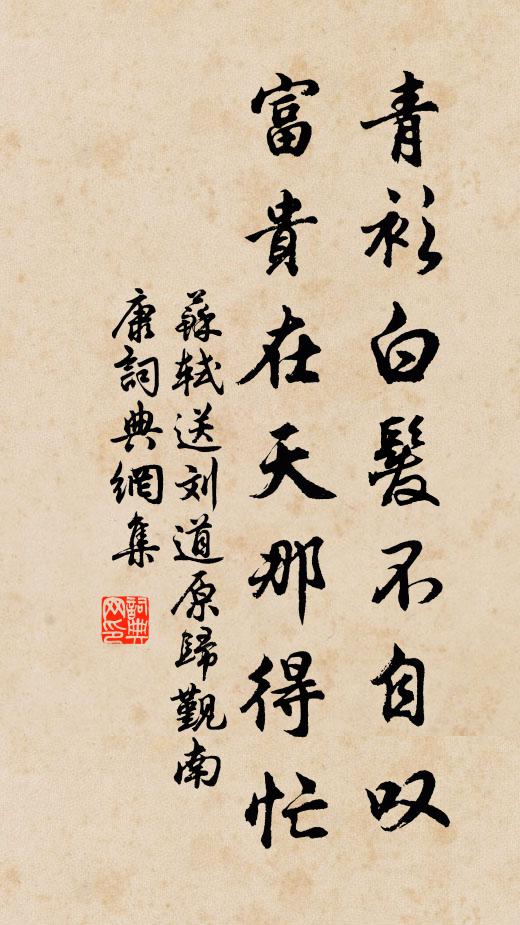 青衫白髮不自叹
富貴在天那得忙
蘇軾送刘道原歸觐南
康詞典網集
詞典网印